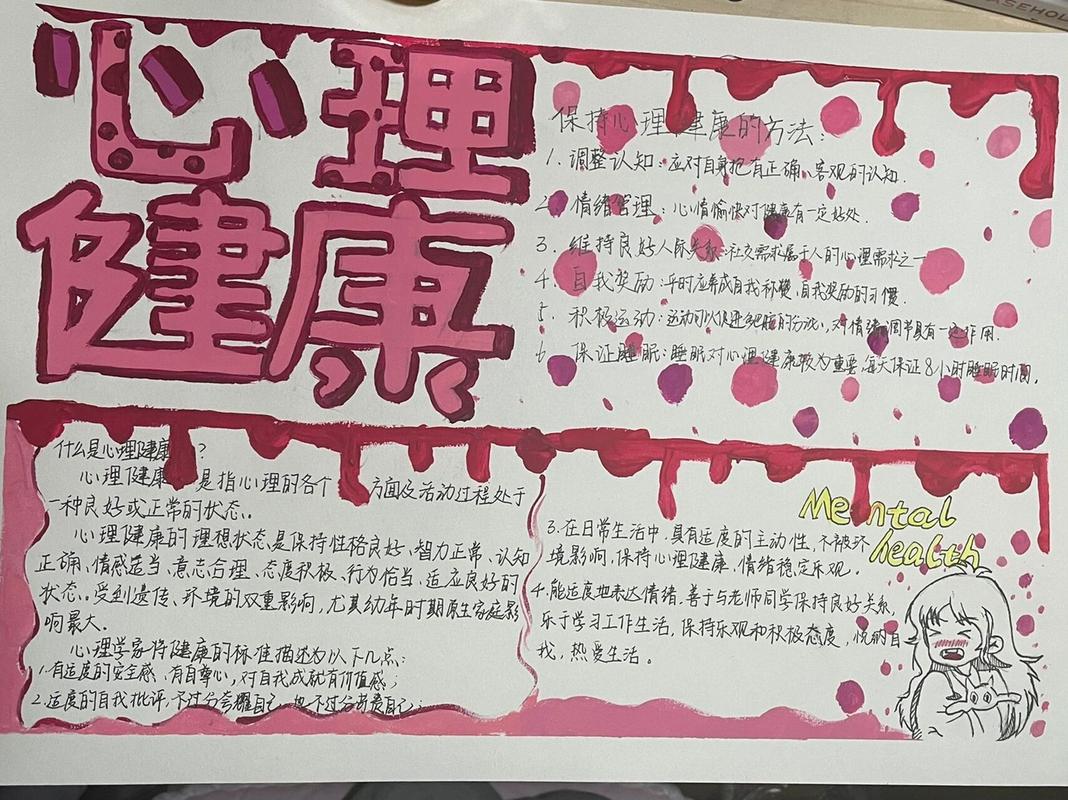 心理
健康
保持心理健康的方法：
1. 调整认知：应对自身抱有正确、客观的认知.
2. 情绪管理：心情愉快对健康有一定好处.
3. 维持良好人际关系：社交需求属于人的心理需求之一
4. 自我奖励：平时应养成自我称赞、自我奖励的习惯.
5. 积极运动：运动可以促进多巴胺的分泌，对情绪调节具有一定作用.
6. 保证睡眠：睡眠对心理健康较为重要，每天保证8小时睡眠时间.
什么是心理健康？
心理健康是指心理的各个方面及活动过程处于
一种良好或正常的状态.
心理健康的理想状态是保持性格良好、智力正常、认知
正确、情感适当、意志合理、态度积极、行为恰当、适应良好的
状态。受到遗传、环境的双重影响，尤其幼年时期原生家庭影
响最大.
心理学家将健康的标准描述为以下几点：
1.有适度的安全感，有自尊心，对自我成就有价值感；
2.适度的自我批评，不过分夸耀自己，也不过分苛责自己；
3.在日常生活中，具有适度的主动性，不被环
境影响，保持心理健康，情绪稳定乐观，
4.能适度地表达情绪，善于与老师同学保持良好关系，
乐于学习工作生活，保持乐观和积极态度，悦纳自
我，热爱生活。
Mental
health